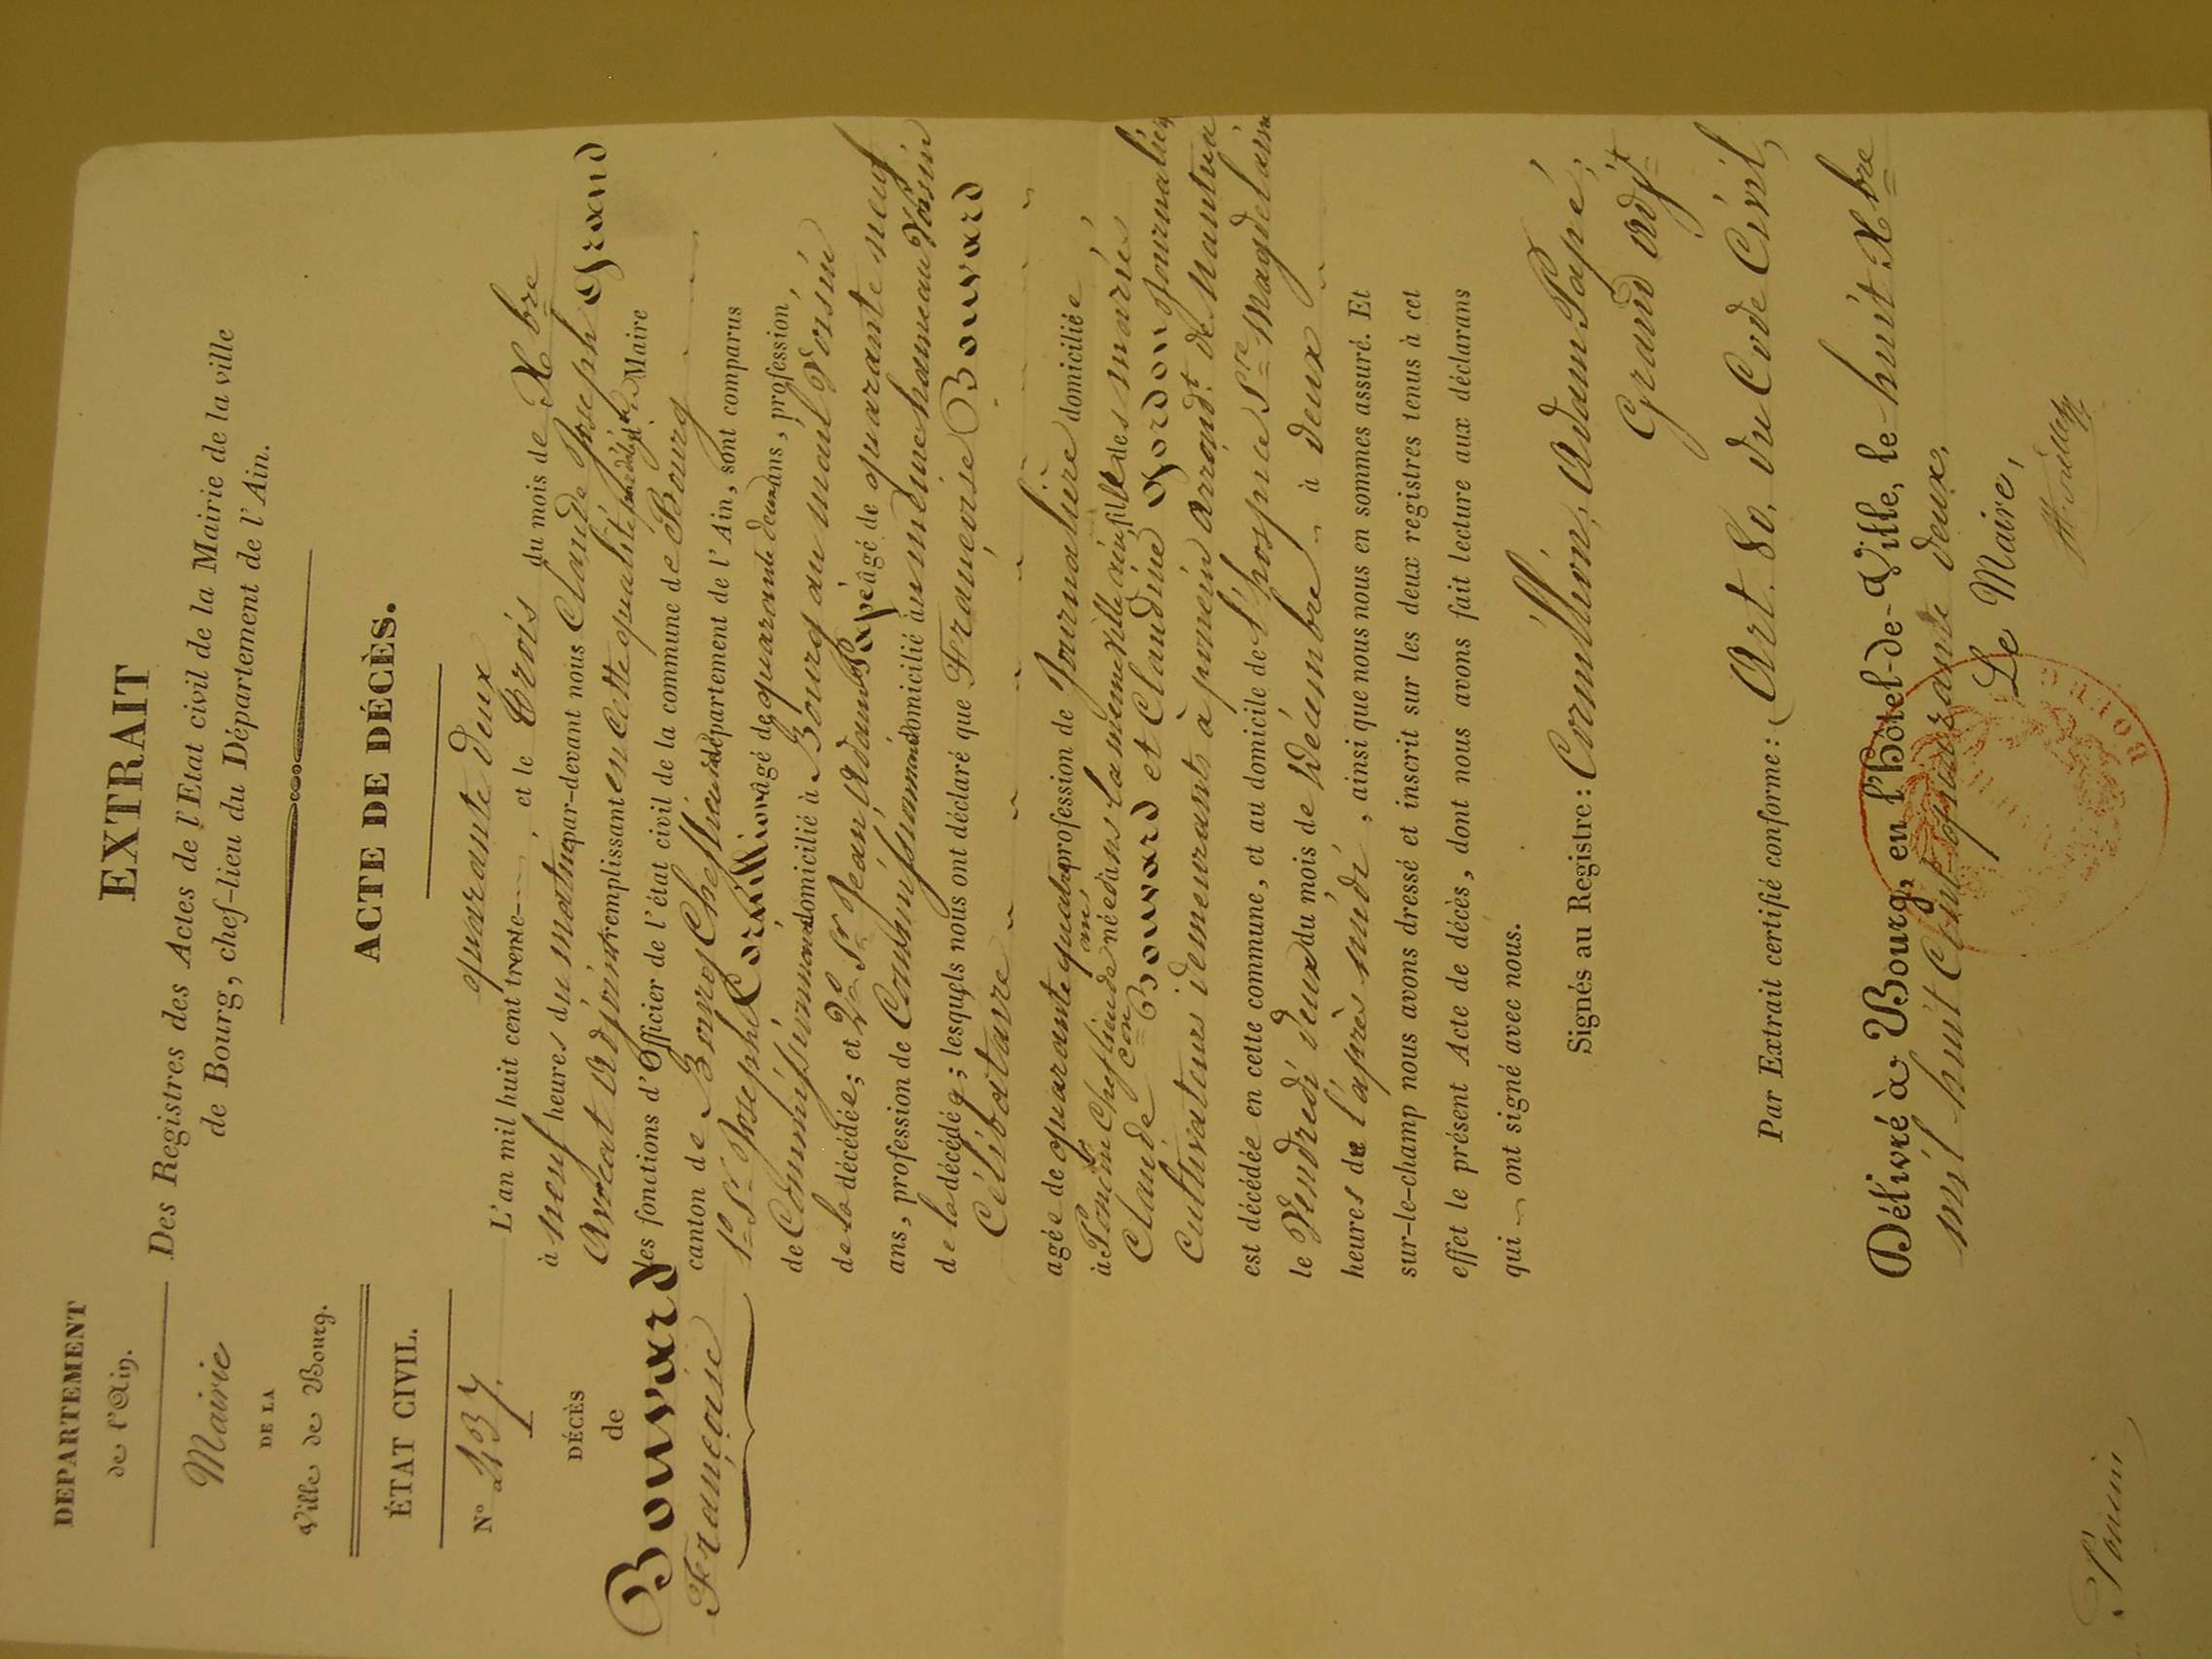 DEPARTEMENT
de l'Ain.
Mairie
DE LA
Ville de Bourg.
ÉTAT CIVIL.
N° 437.
DÉCÈS
de
Bouvard
Françoise
EXTRAIT
Des Registres des Actes de l'Etat civil de la Mairie de la ville
de Bourg, chef-lieu du Département de l'Ain.
ACTE DE DÉCÈS.
quarante deux
L'an mil huit cent trente et le trois du mois de Xbre
à neuf heures du matin par-devant nous Claude Joseph Grand
Avocat Adjoint remplissant en cette qualité Maire
les fonctions d'Officier de l'état civil de la commune de Bourg
canton de Bourg Chef lieu du département de l'Ain, sont comparus
1° Sr Joseph Cornillion âgé de quarante deux ans, profession
de Commissionnaire domicilié à Bourg au mail Voisin
de la décédée; et 2° Sr Jean Adam Papé âgé de quarante neuf
ans, profession de Commissionnaire domicilié au même hameau Voisin
de la décédée; lesquels nous ont déclaré que Françoise Bouvard
Célibataire
agée de quarante quatre ans profession de Journalière domiciliée
à Poncin Chef lieu de con née dans la même ville fille des mariés
Claude Bouvard et Claudine Gordon Journaliers
Cultivateurs demeurants à poncin arrondt. de Nantua
est décédée en cette commune, et au domicile de l'hospice Ste Magdelaine
le Vendredi deux du mois de Décembre à deux
heures de l'après midi, ainsi que nous nous en sommes assuré. Et
sur-le-champ nous avons dressé et inscrit sur les deux registres tenus à cet
effet le présent Acte de décès, dont nous avons fait lecture aux déclarans
qui ont signé avec nous.
Signés au Registre: Cornillion, Adam Papé,
Grand adjt
Par Extrait certifié conforme: Art. 80. du Code Civil,
Délivré à Bourg, en l'Hôtel-de-Ville, le huit Xbre
mil huit Cent quarante deux.
Le Maire,
BOURG
Poncin